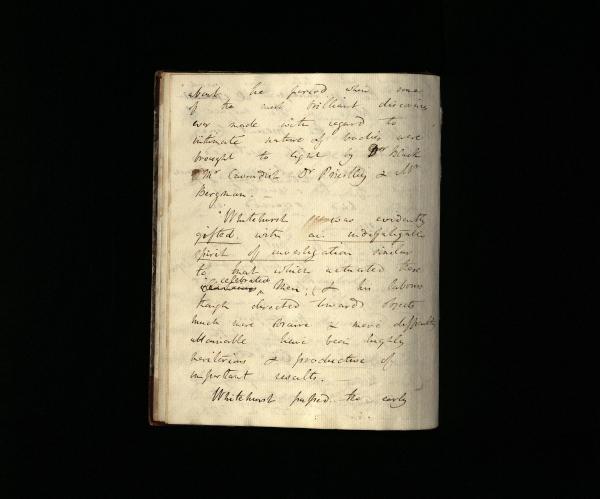 about the period when some
of the most brilliant discoveries
ever made with regard to
intimate nature of bodies were
brought to light by Dr Black
Mr Cavendish Dr Priestley & Mr
Bergman. –
Whitehurst was evidently
gifted with an indefatigable
spirit of investigation similar
to that which actuated these
celebrated
Men, & his labours
though directed towards objects
much more obscure & more difficultly
attainable have been highly
meritorious & productive of
important results. –
Whitehurst passed the early